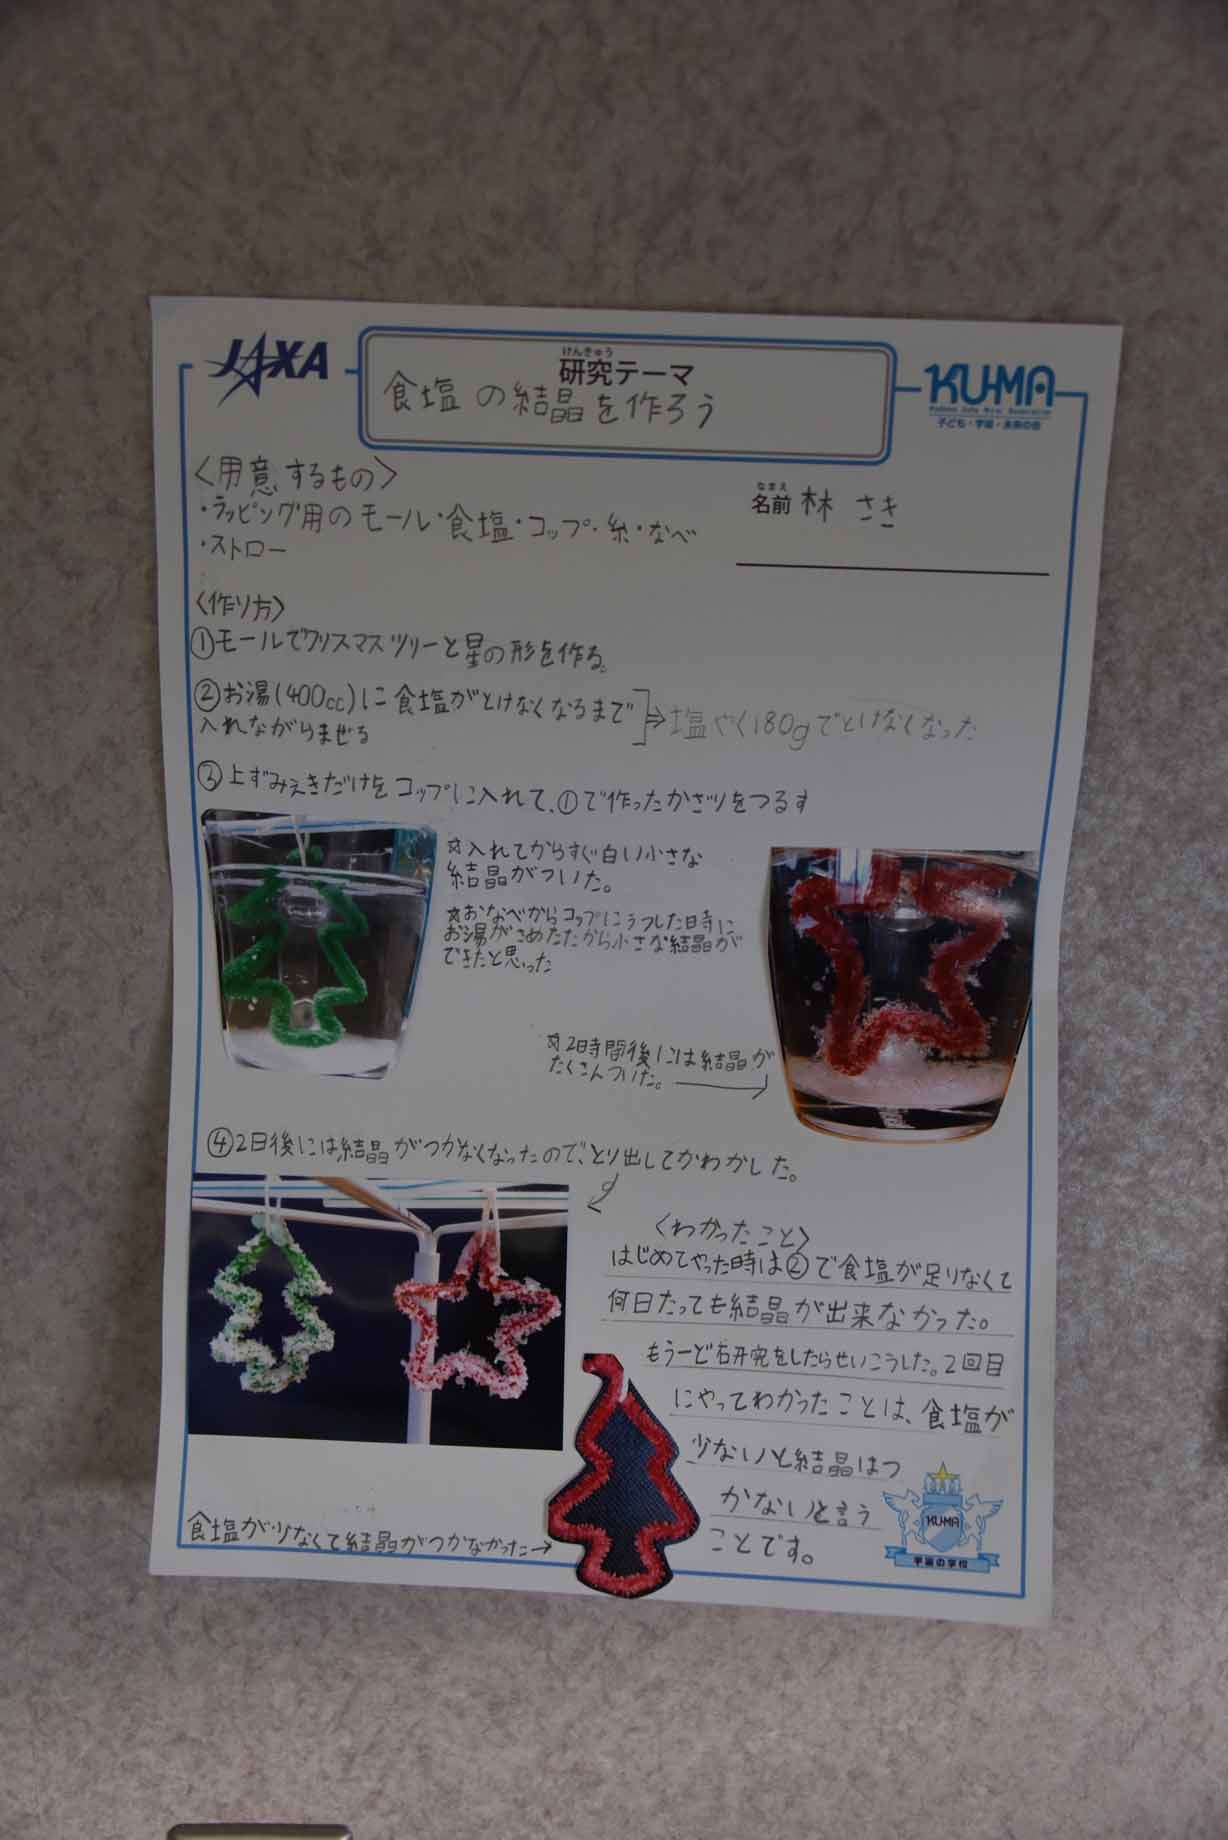 JAXA
けんきゅう
研究テーマ
食塩の結晶を作ろう
KU-MA
子ども・宇宙・未来の会
<用意するもの>
・ラッピング用のモール・食塩・コップ・糸・なべ
・ストロー
なまえ
名前 林 さき
<作り方>
①モールでクリスマスツリーと星の形を作る。
②お湯(400cc)に食塩がとけなくなるまで
入れながらまぜる
⇒塩やく180gでとけなくなった
③上ずみえきだけをコップに入れて、①で作ったかざりをつるす
☆入れてからすぐ白い小さな
結晶がついた。
☆おなべからコップにうつした時に
お湯がさめたたから小さな結晶が
できたと思った
☆2時間後には結晶が
たくさんついた。
④2日後には結晶がつかなくなったので、とり出してかわかした。
<わかったこと>
はじめてやった時は②で食塩が足りなくて
何日たっても結晶が出来なかった。
もう一ど研究をしたらせいこうした。2回目
にやってわかったことは、食塩が
少ないと結晶はつ
かないと言う
ことです。
KUMA
宇宙の学校
食塩が少なくて結晶がつかなかった→